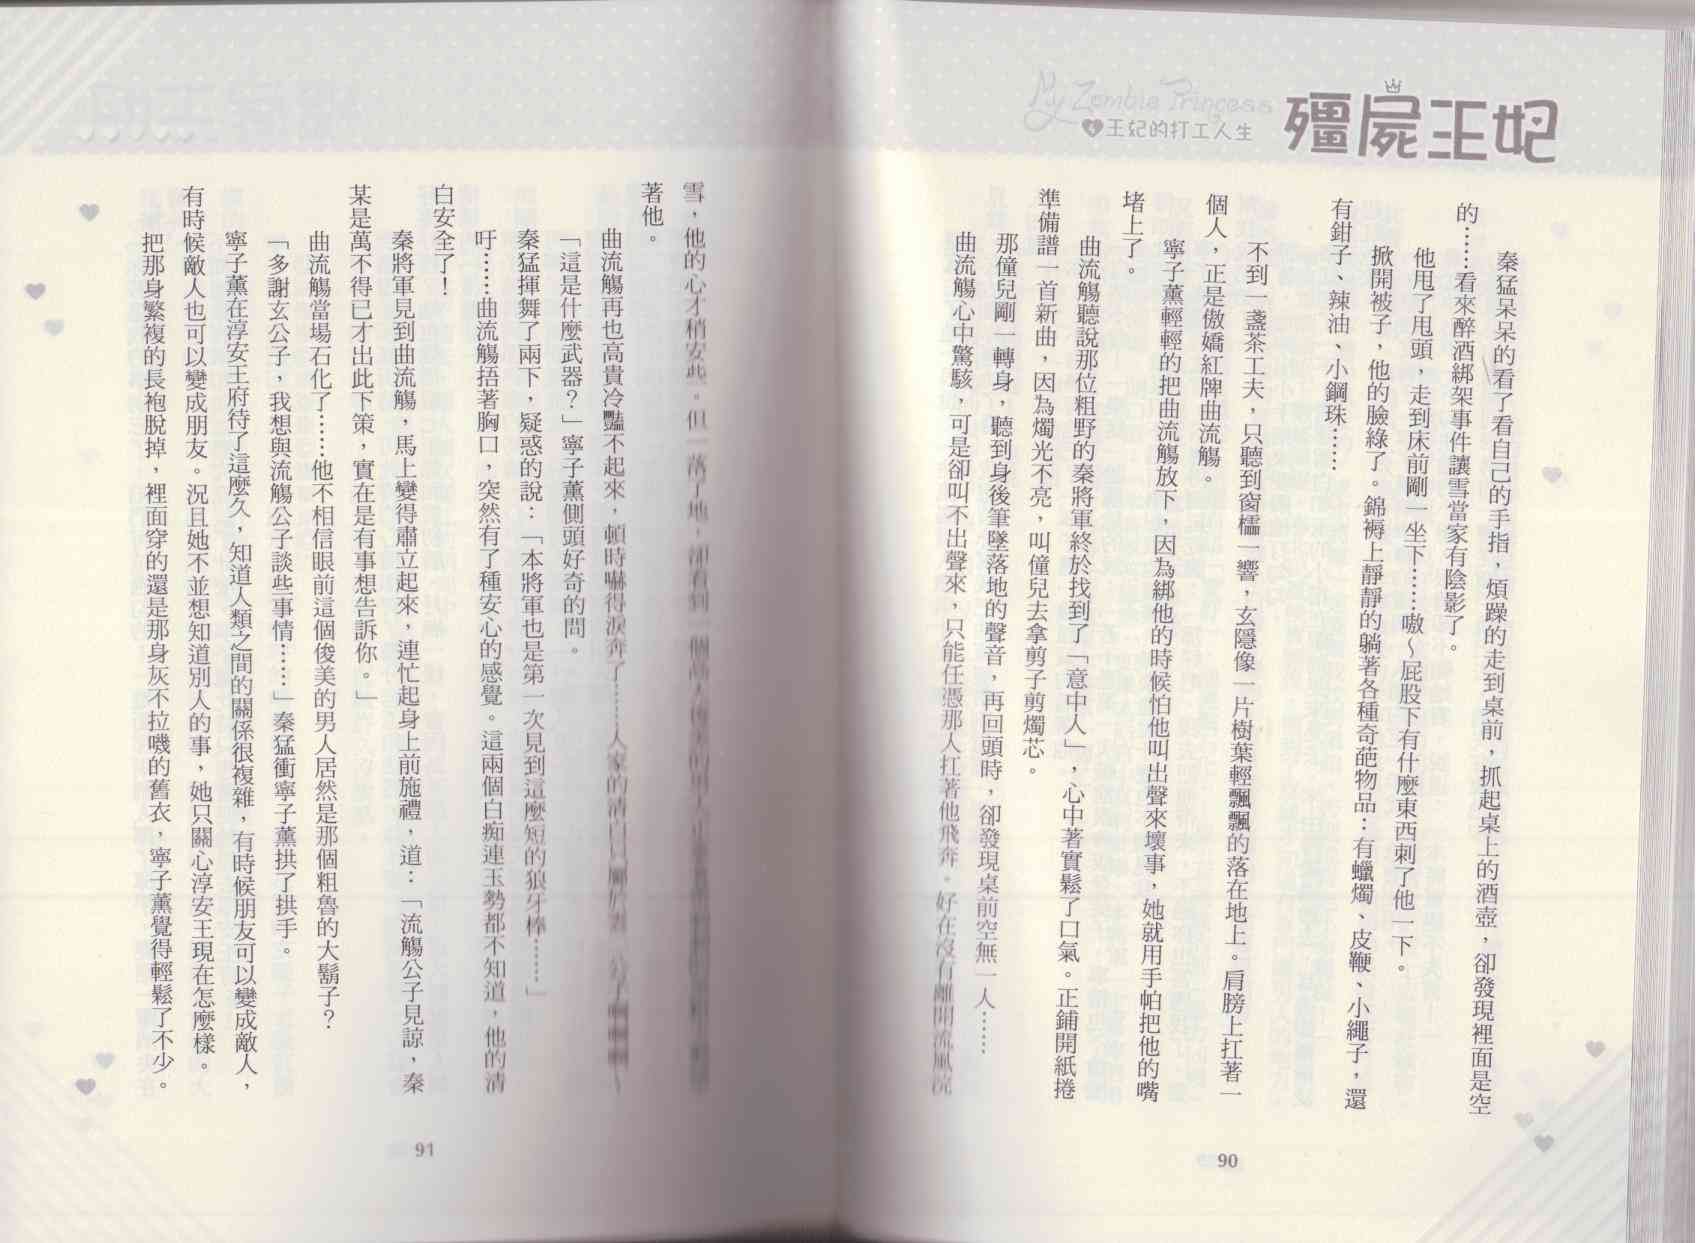 My Zombie Princess
殭屍王妃
4王妃的打工人生
秦猛呆呆的看了看自己的手指，煩躁的走到桌前，抓起桌上的酒壺，卻發現裡面是空
的……看來醉酒綁架事件讓雪當家有陰影了。
他甩了甩頭，走到床前剛一坐下……嗷～屁股下有什麼東西刺了他一下。
掀開被子，他的臉綠了。錦褥上靜靜的躺著各種奇葩物品：有蠟燭、皮鞭、小繩子，還
有鉗子、辣油、小鋼珠……
不到一盞茶工夫，只聽到窗櫺一響，玄隱像一片樹葉輕飄飄的落在地上。肩膀上扛著一
個人，正是傲嬌紅牌曲流觴。
寧子薰輕輕的把曲流觴放下，因為綁他的時候怕他叫出聲來壞事，她就用手帕把他的嘴
堵上了。
曲流觴聽說那位粗野的秦將軍終於找到了「意中人」，心中著實鬆了口氣。正鋪開紙捲
準備譜一首新曲，因為燭光不亮，叫僮兒去拿剪子剪燭芯。
那僮兒剛一轉身，聽到身後筆墜落地的聲音，再回頭時，卻發現桌前空無一人……
曲流觴心中驚駭，可是卻叫不出聲來，只能任憑那人扛著他飛奔。好在沒有離開流風浣
90
雪，他的心才稍安些。但一落了地，卻看到一個
著他。
曲流觴再也高貴冷豔不起來，頓時嚇得淚奔了……人家的清白
「這是什麼武器？」寧子薰側頭好奇的問。
秦猛揮舞了兩下，疑惑的說：「本將軍也是第一次見到這麼短的狼牙棒……」
吁……曲流觴捂著胸口，突然有了種安心的感覺。這兩個白痴連玉勢都不知道，他的清
白安全了！
秦將軍見到曲流觴，馬上變得肅立起來，連忙起身上前施禮，道：「流觴公子見諒，秦
某是萬不得已才出此下策，實在是有事想告訴你。」
曲流觴當場石化了……他不相信眼前這個俊美的男人居然是那個粗魯的大鬍子？
「多謝玄公子，我想與流觴公子談些事情……」秦猛衝寧子薰拱了拱手。
寧子薰在淳安王府待了這麼久，知道人類之間的關係很複雜，有時候朋友可以變成敵人，
有時候敵人也可以變成朋友。況且她不並想知道別人的事，她只關心淳安王現在怎麼樣。
把那身繁複的長袍脫掉，裡面穿的還是那身灰不拉嘰的舊衣，寧子薰覺得輕鬆了不少。
91